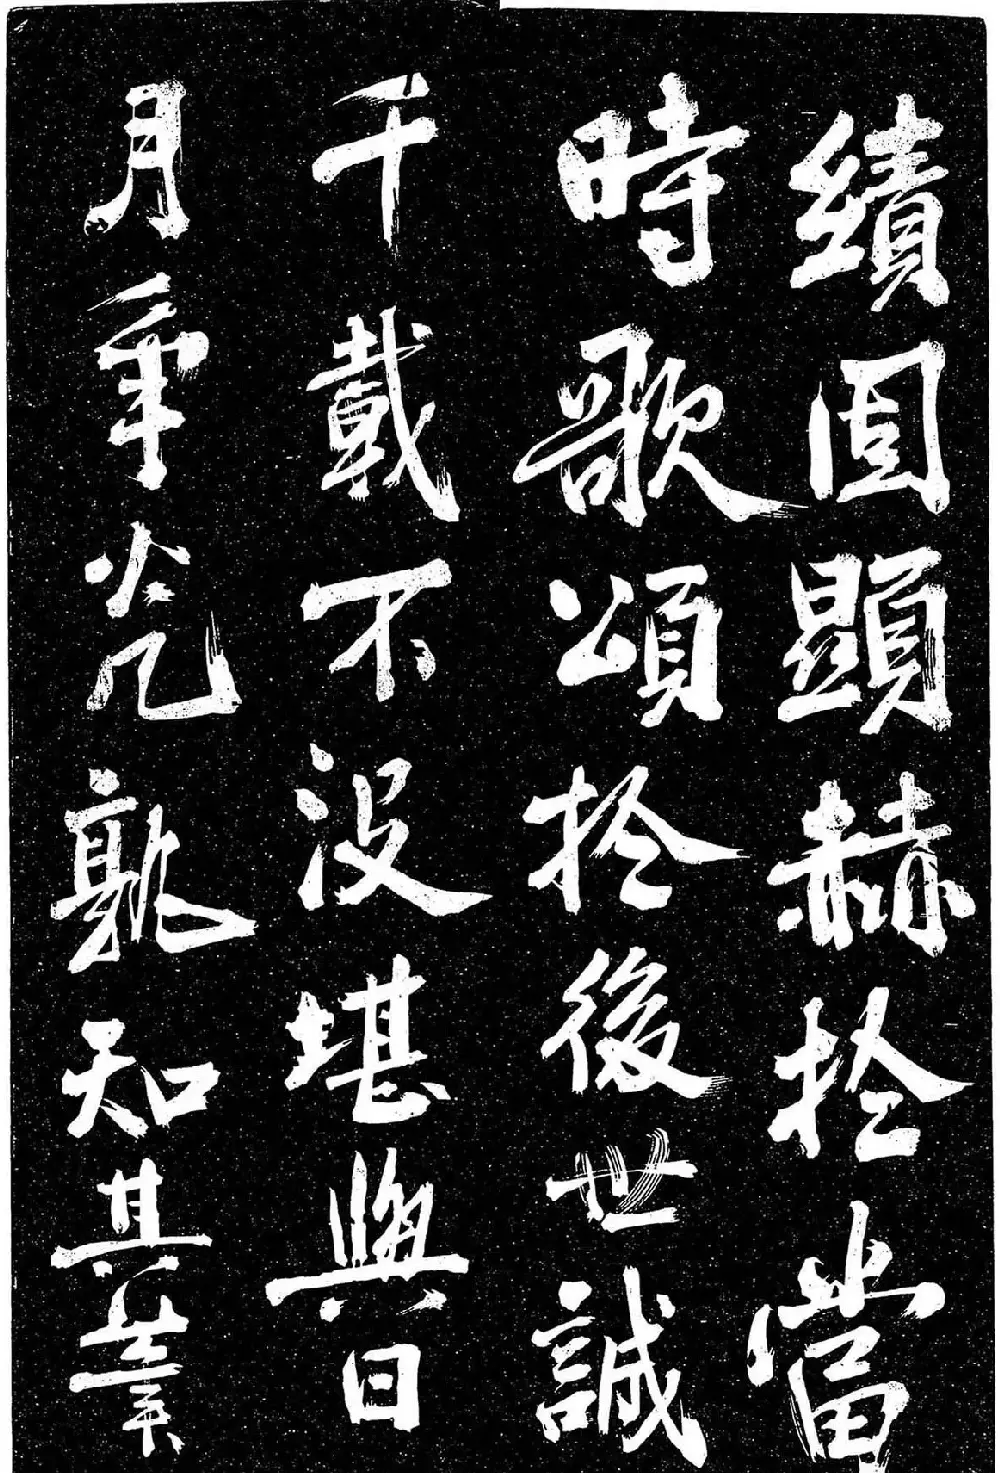 績固顯赫於當
時歌頌於後世誠
千載不沒堪與日
月争光孰知其業